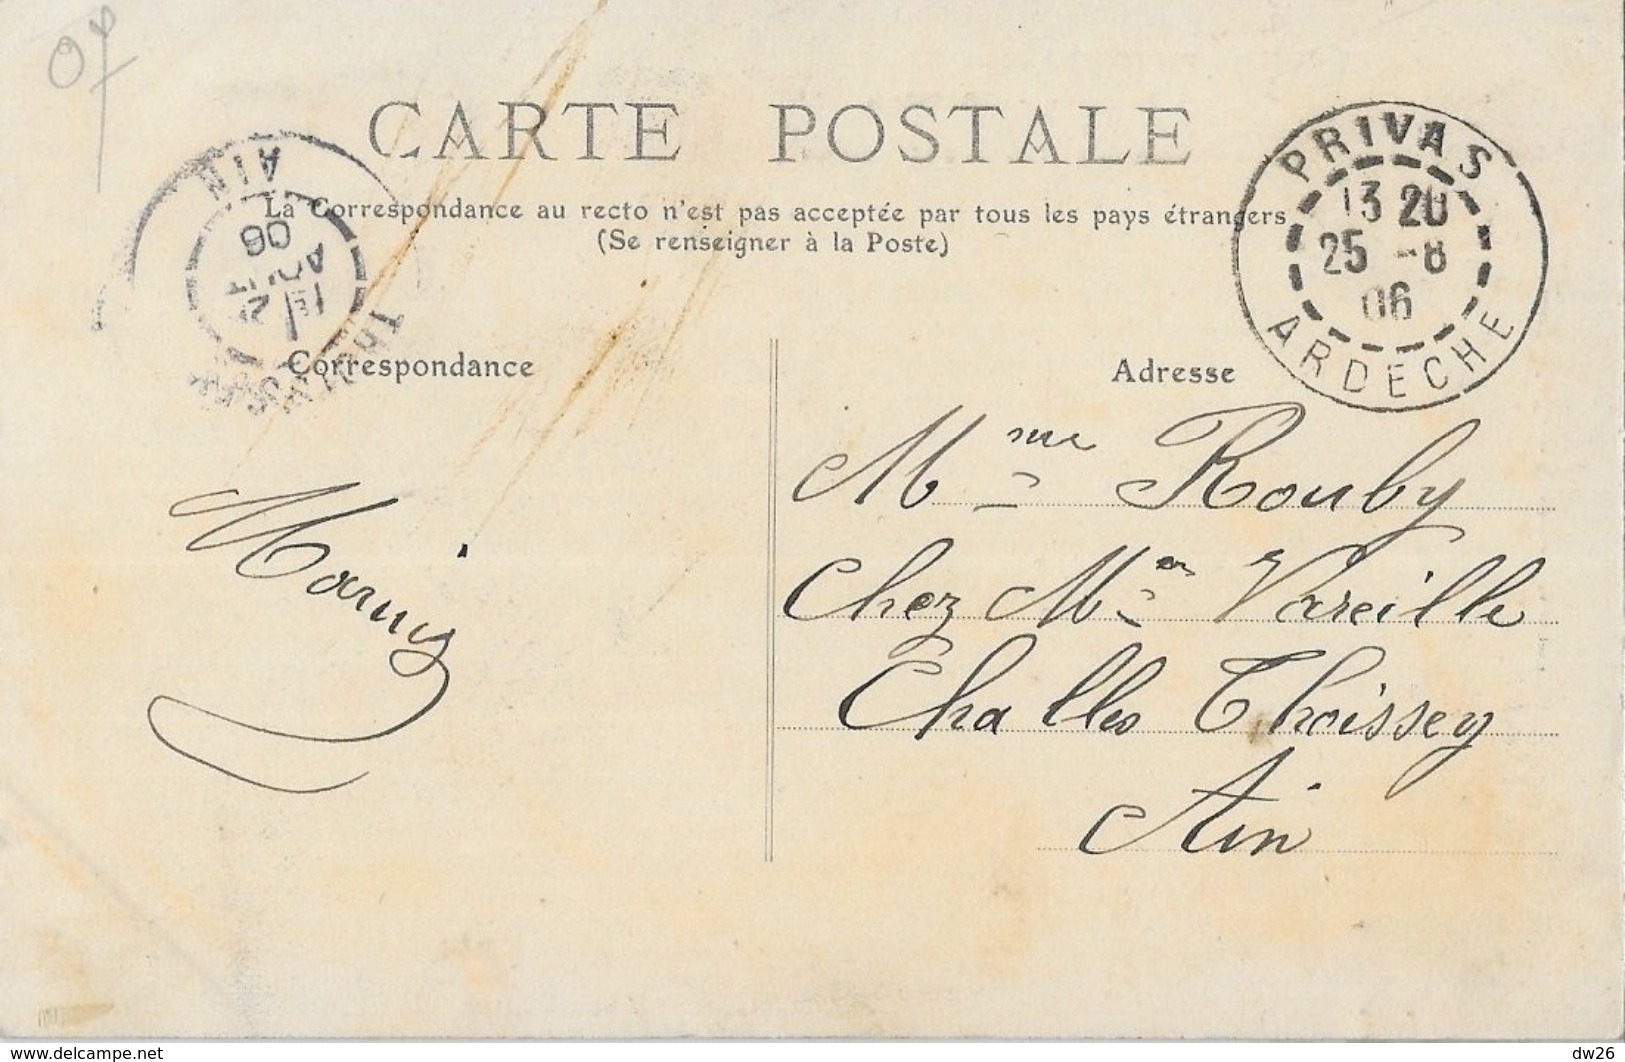 CARTE POSTALE
La Correspondance au recto n'est pas acceptée par tous les pays étrangers
(Se renseigner à la Poste)
AIN
AOUT
06
PRIVAS
13 20
25 -8
06
ARDECHE
Correspondance
Adresse
Mme Rouby
Chez Mme Vareille
Challes Thoissey
Ain
www.delcampe.net
dw26